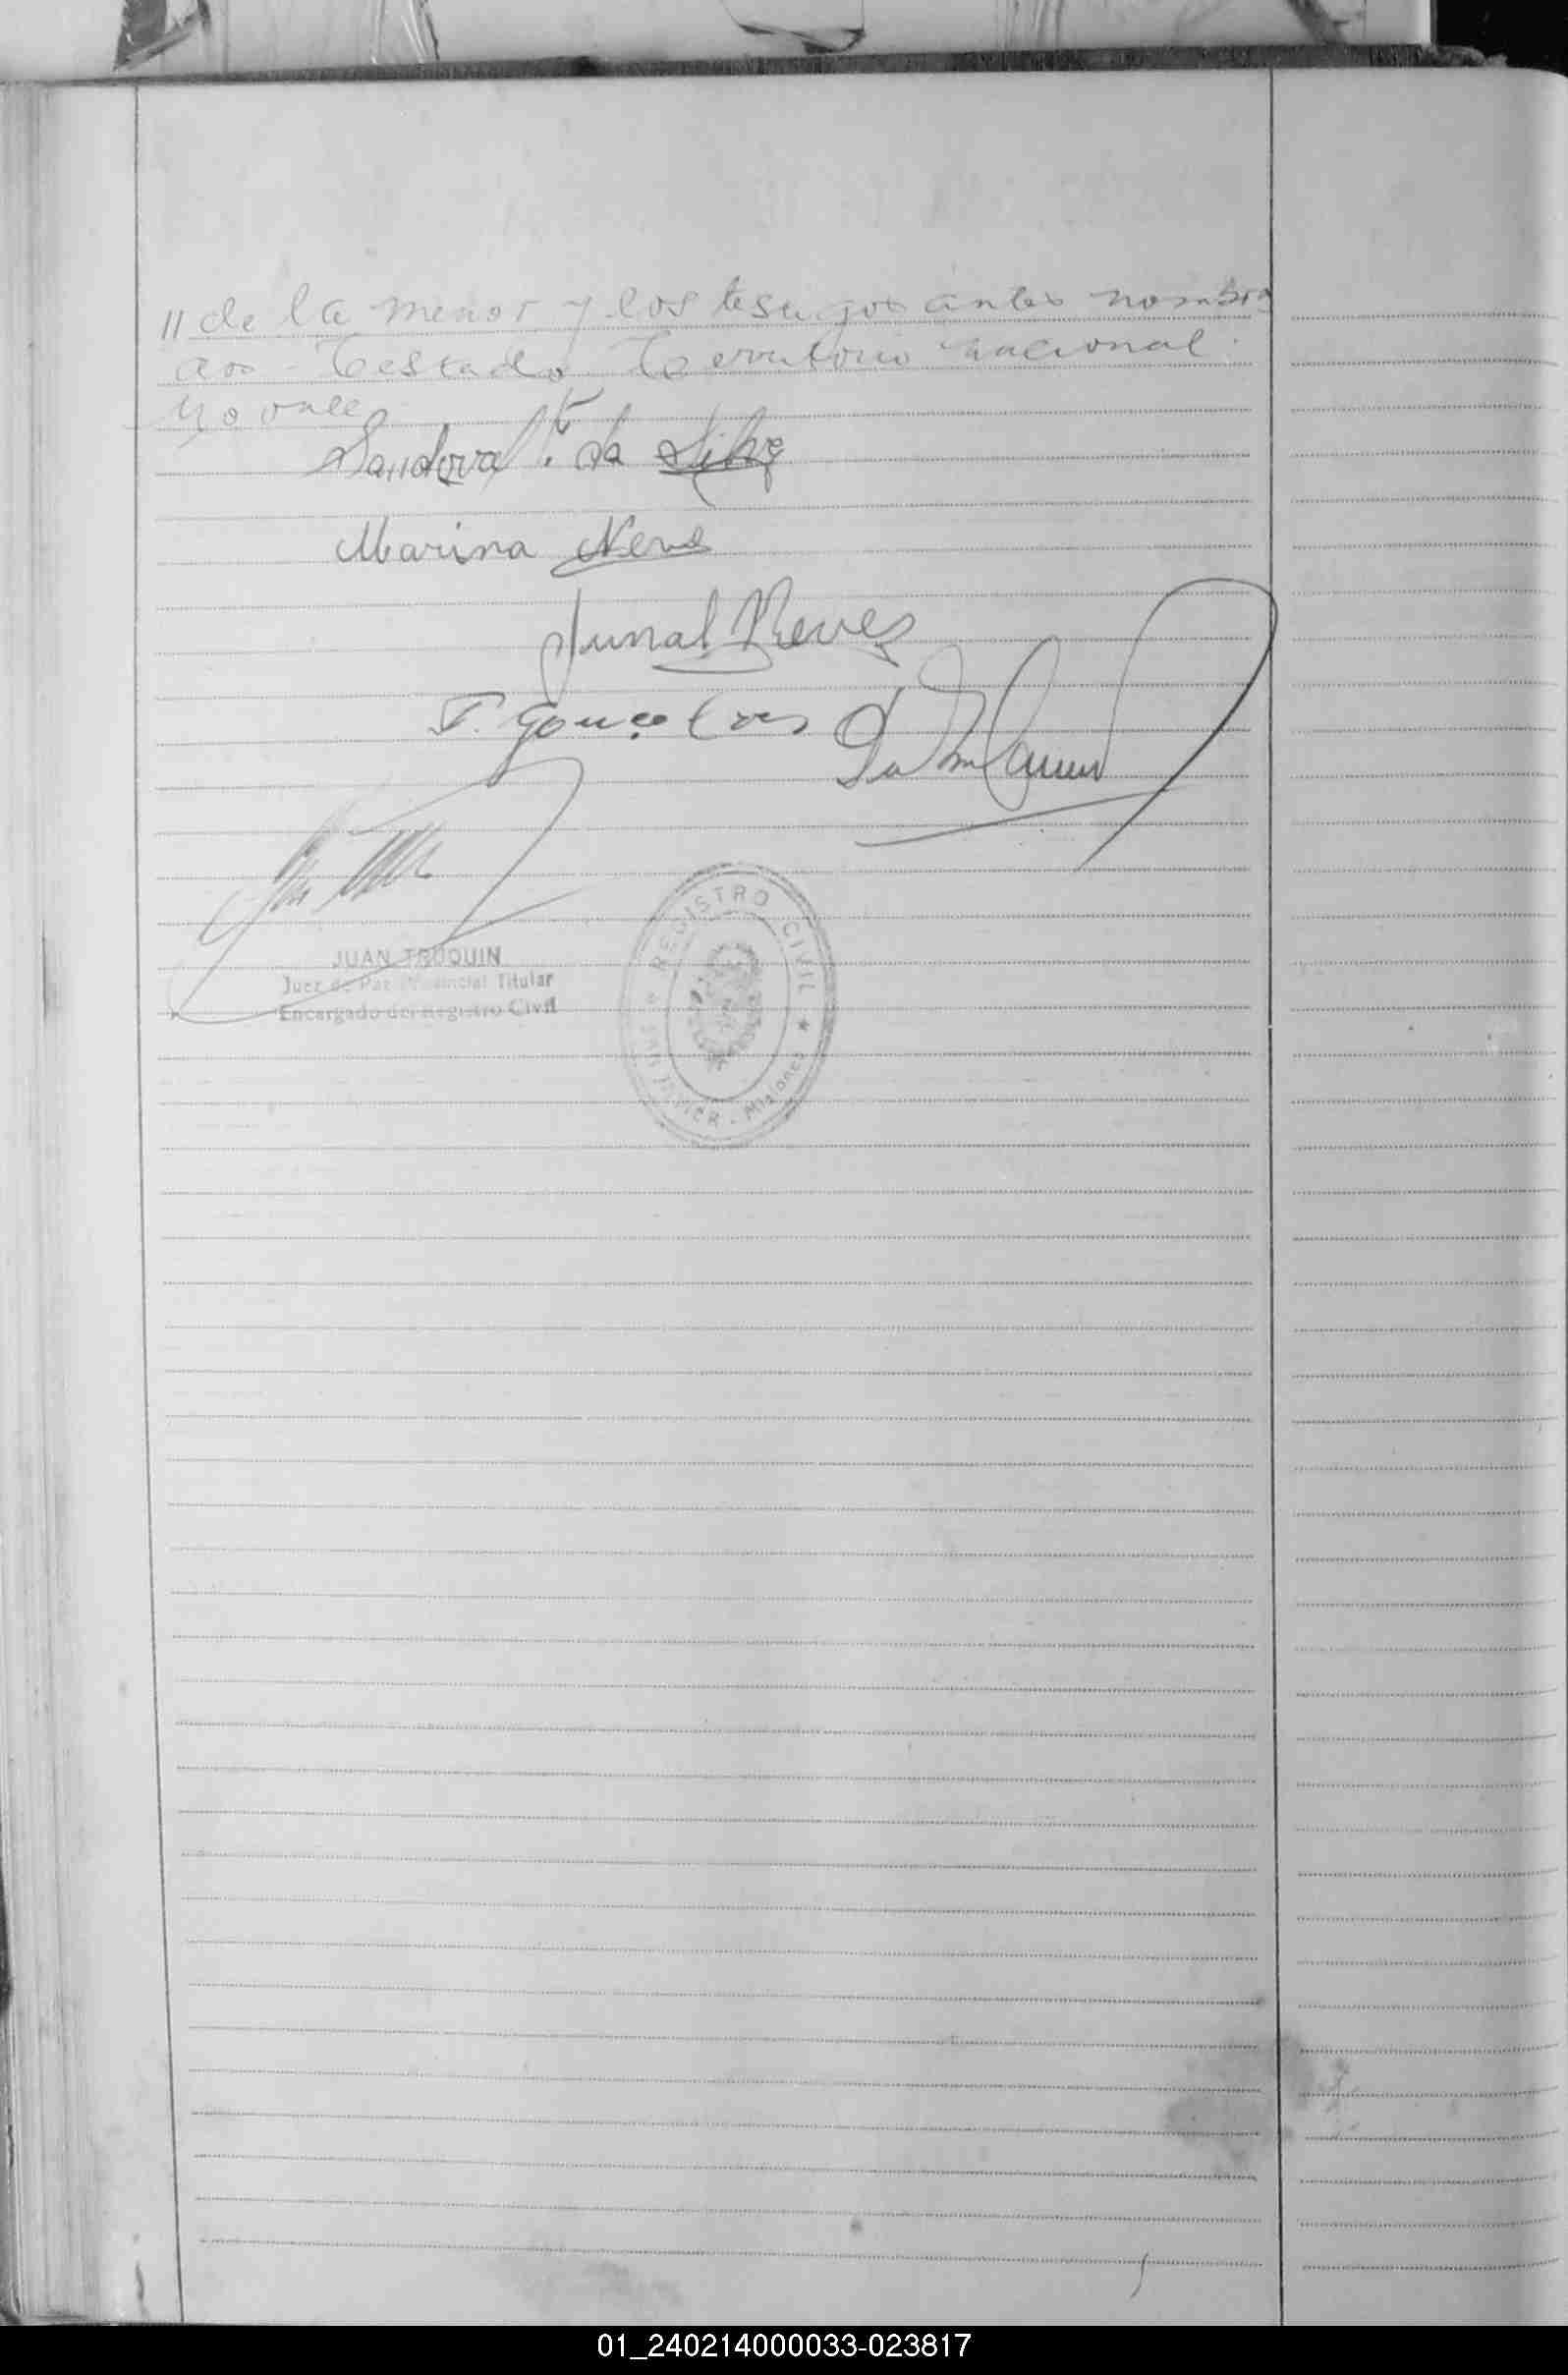 // de la menor y los testigos antes nombra
dos - Testado Territorio nacional.
No vale
Sandoval F. da Silva
Marina Neve
Junal Neves
F. Gonçalves
JUAN TRUQUIN
Juez de Paz Provincial Titular
Encargado del Registro Civil
REGISTRO CIVIL ★ SAN JAVIER - Misiones
01_240214000033-023817